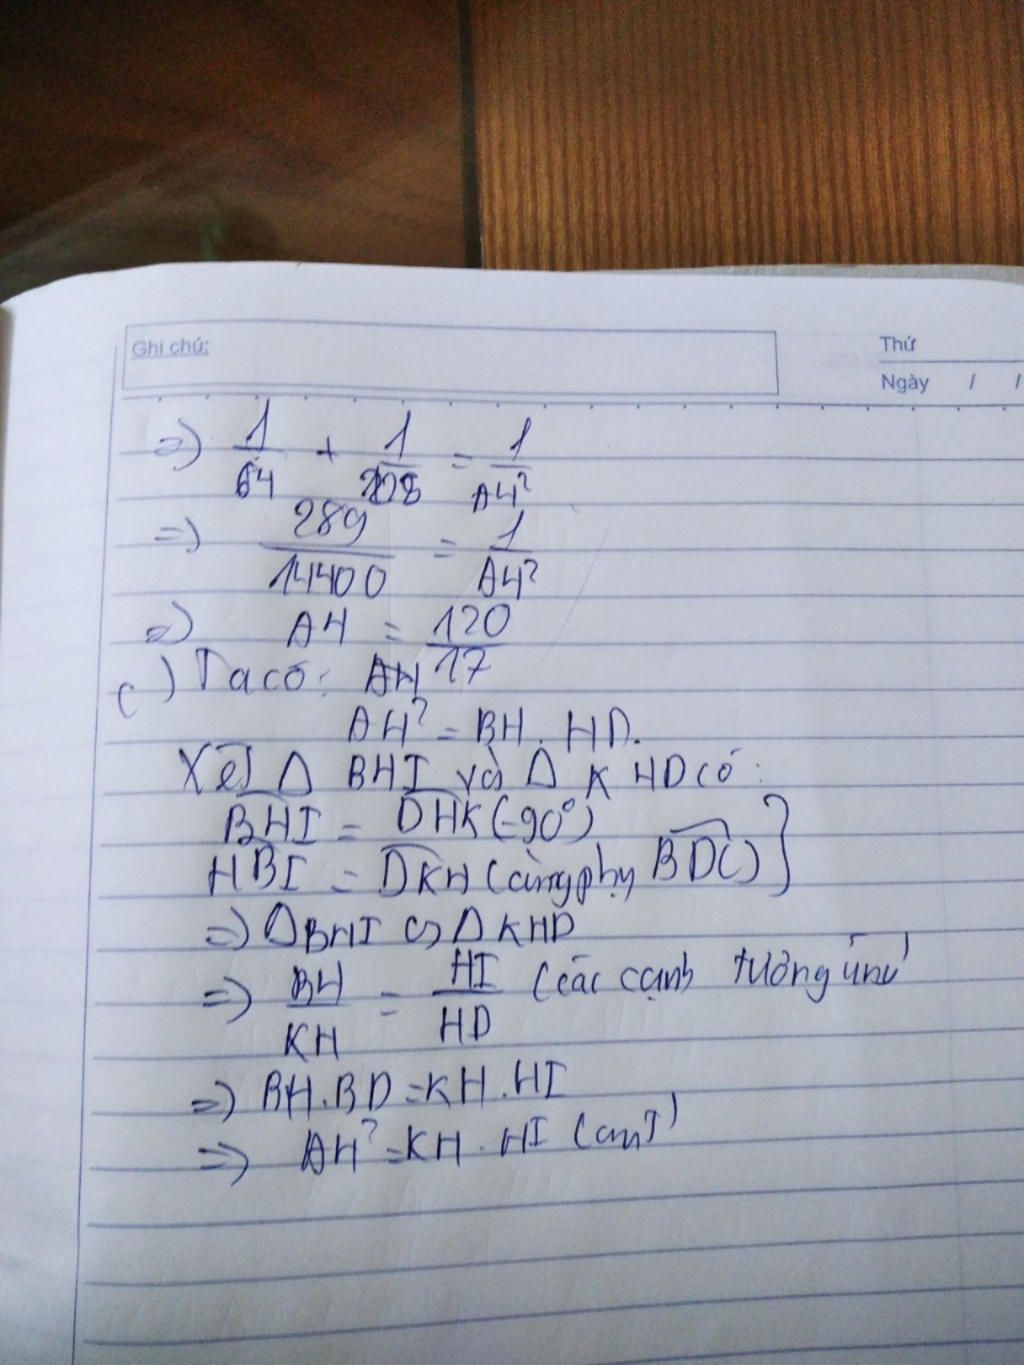 Ghi chú:
Thứ
Ngày / /
=> 1/64 + 1/225 = 1/AH²
=> 289/14400 = 1/AH²
=> AH = 120/17
c) Ta có: AH
AH² = BH . HD.
Xét Δ BHI và Δ KHD có:
BHI = DHK (=90°)
HBI = DKH (cùng phụ BDC)
=> ΔBHI ∽ Δ KHD
=> BH/KH = HI/HD (các cạnh tương ứng)
=> BH.BD = KH.HI
=> AH² = KH . HI